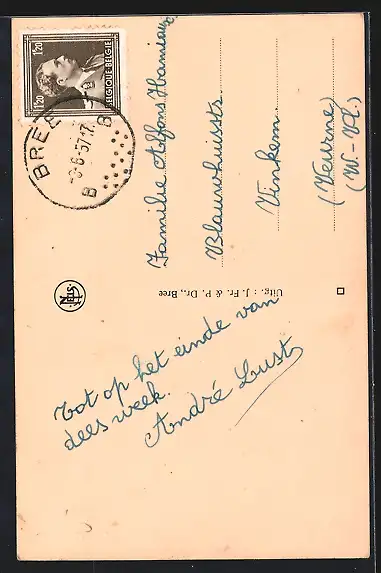 Tot op het einde van
dees week.
André Lust
Uitg.: J. Fr. & P. Dr., Bree
NELS
1.20 1.20
BELGIQUE BELGIE
BREE
-8-6-57.17
B B
Familie Alfons
Blauwhuisstr.
Vinkem.
(Veurne)
(W.-Vl.)